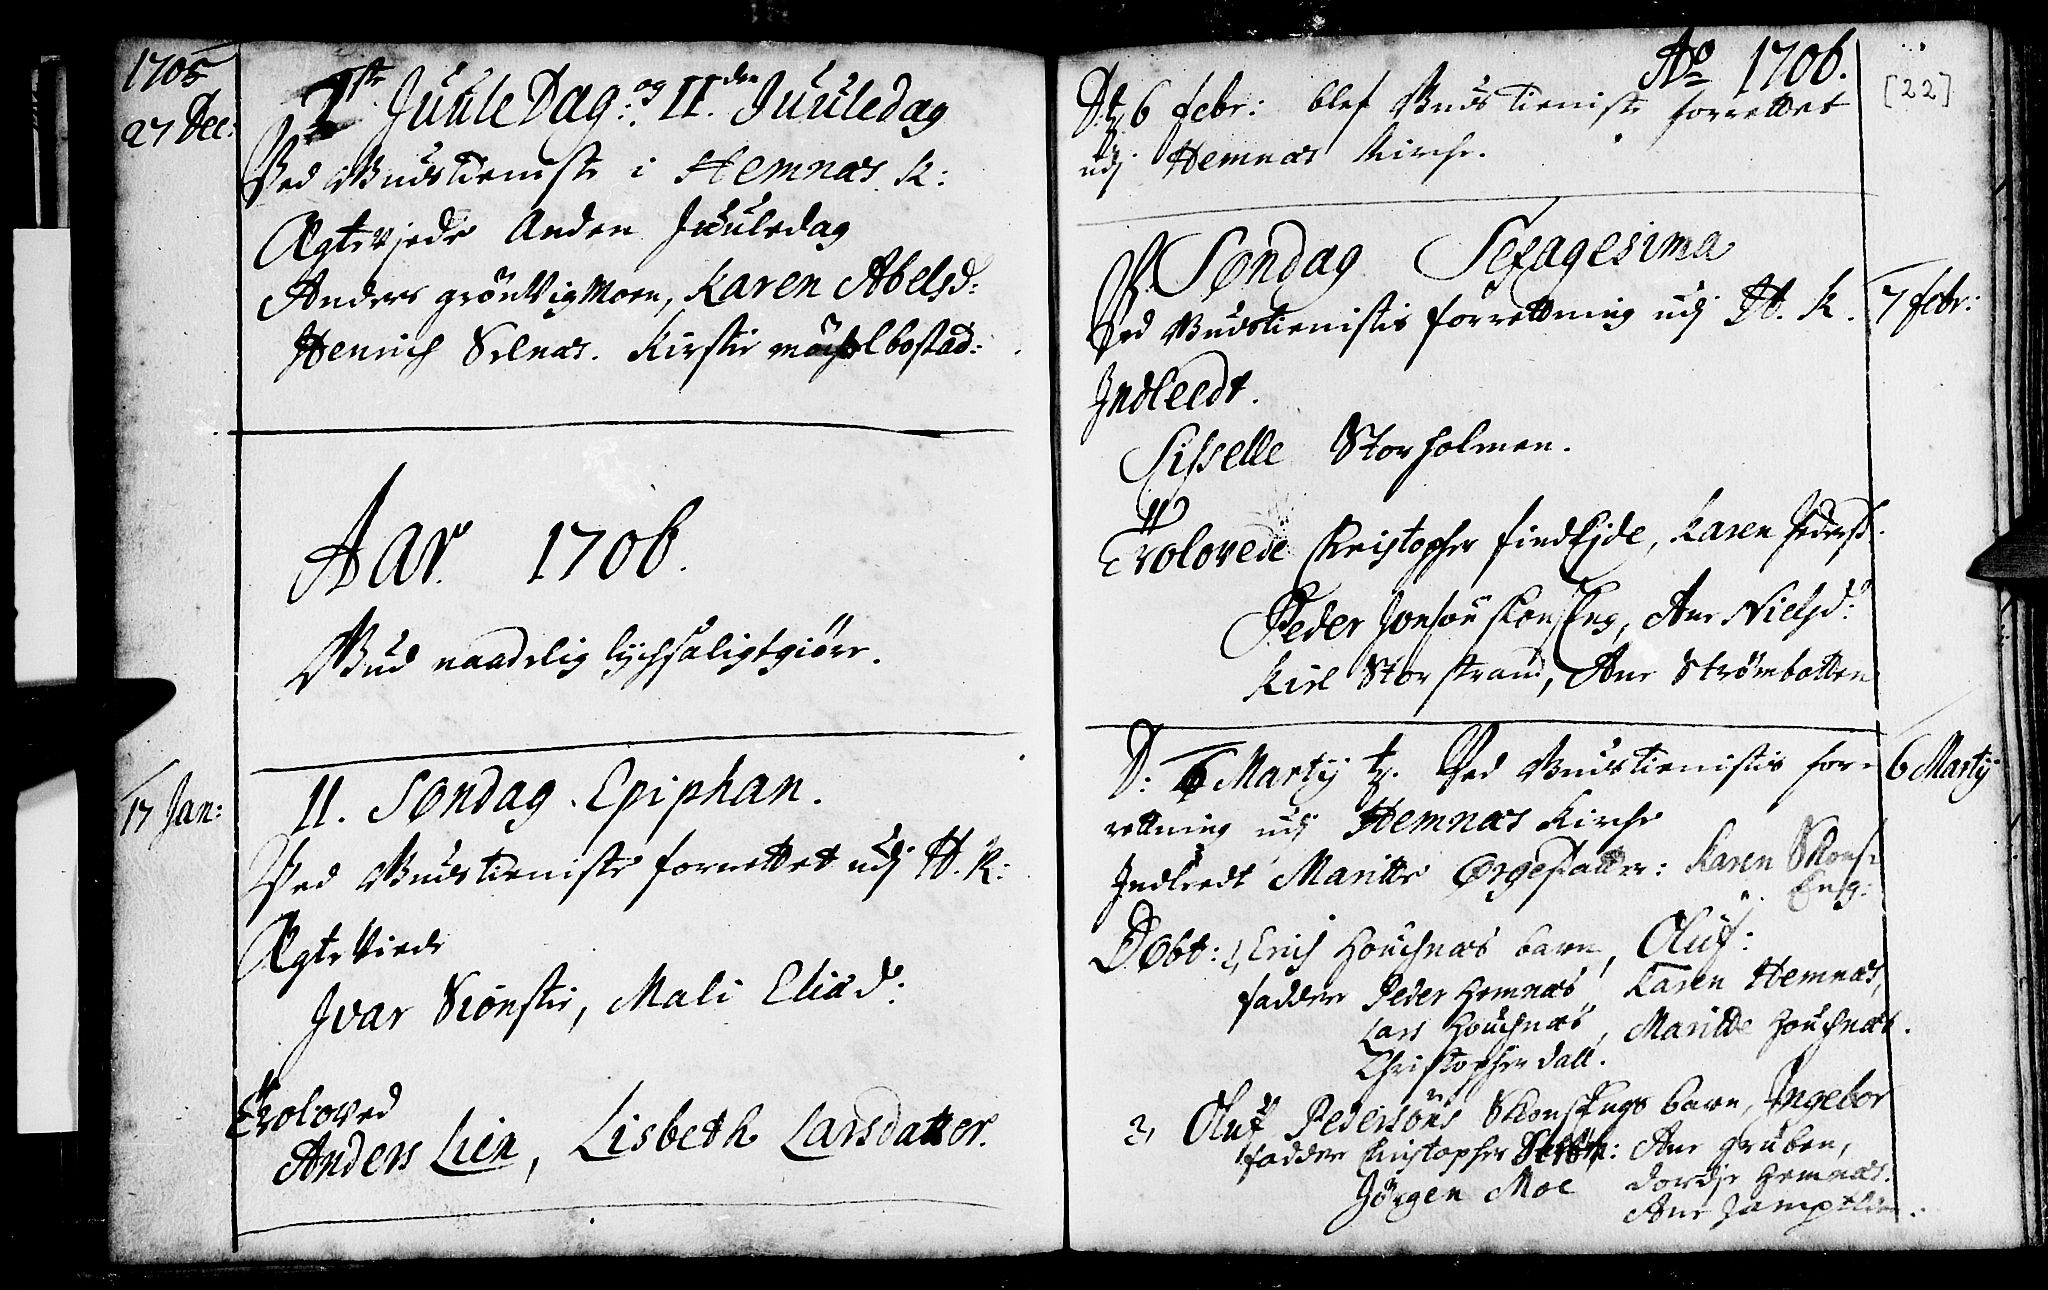 1705
27 Dec:
1ste Juule Dag: og II.den Juuledag
Ved Gudstieniste i Hemnæs K:
Ægteviede Anden Juuledag
Anders grönVigMoen, Karen Abelsd:
Henrich Kirstie
Aar 1706.
Gud naadelig lychsaligtgiöre.
17 Jan:
II. Søndag Epiphan.
Ved Gudstieniste forrettet udj H. K:
Ægte Viede
Jvar Mali Eliæd:
Troloved
Anders Lien, Lisbeth Larsdatter.
Ao 1706.
[22]
D. 6 febr: blef Guds Tieniste forrettet
udj Hemnæs Kirche.
Søndag Sexagesima
Ved Gudstienistis forrettning udj H. K.
7 febr:
Indleedt.
Sisselle Storholmen.
Trolovede Christopher findEjde, Karen Pedersd.
Peder Jonsön Ane Nielsd:
Kiel Storstrand, Ane Strömbotten
D: 6 Martij Ved Gudstienistis for-
6 Martij
rettning udj Hemnæs Kirche
Indleedt Maritte Karen Skons-
Eng:
Döbt: 1, Erich Houchnæs barn, Oluf:
faddere Peder Hemnæs, Karen Hemnæs,
Lars Houchnæs, Maritte Houchnæs.
Christopher Dall.
2, Oluf Pedersöns SkonsEngs barn, Ingebor
faddere Christopher Ane gruben,
Jörgen Moe dordje Hemnæs.
Ane